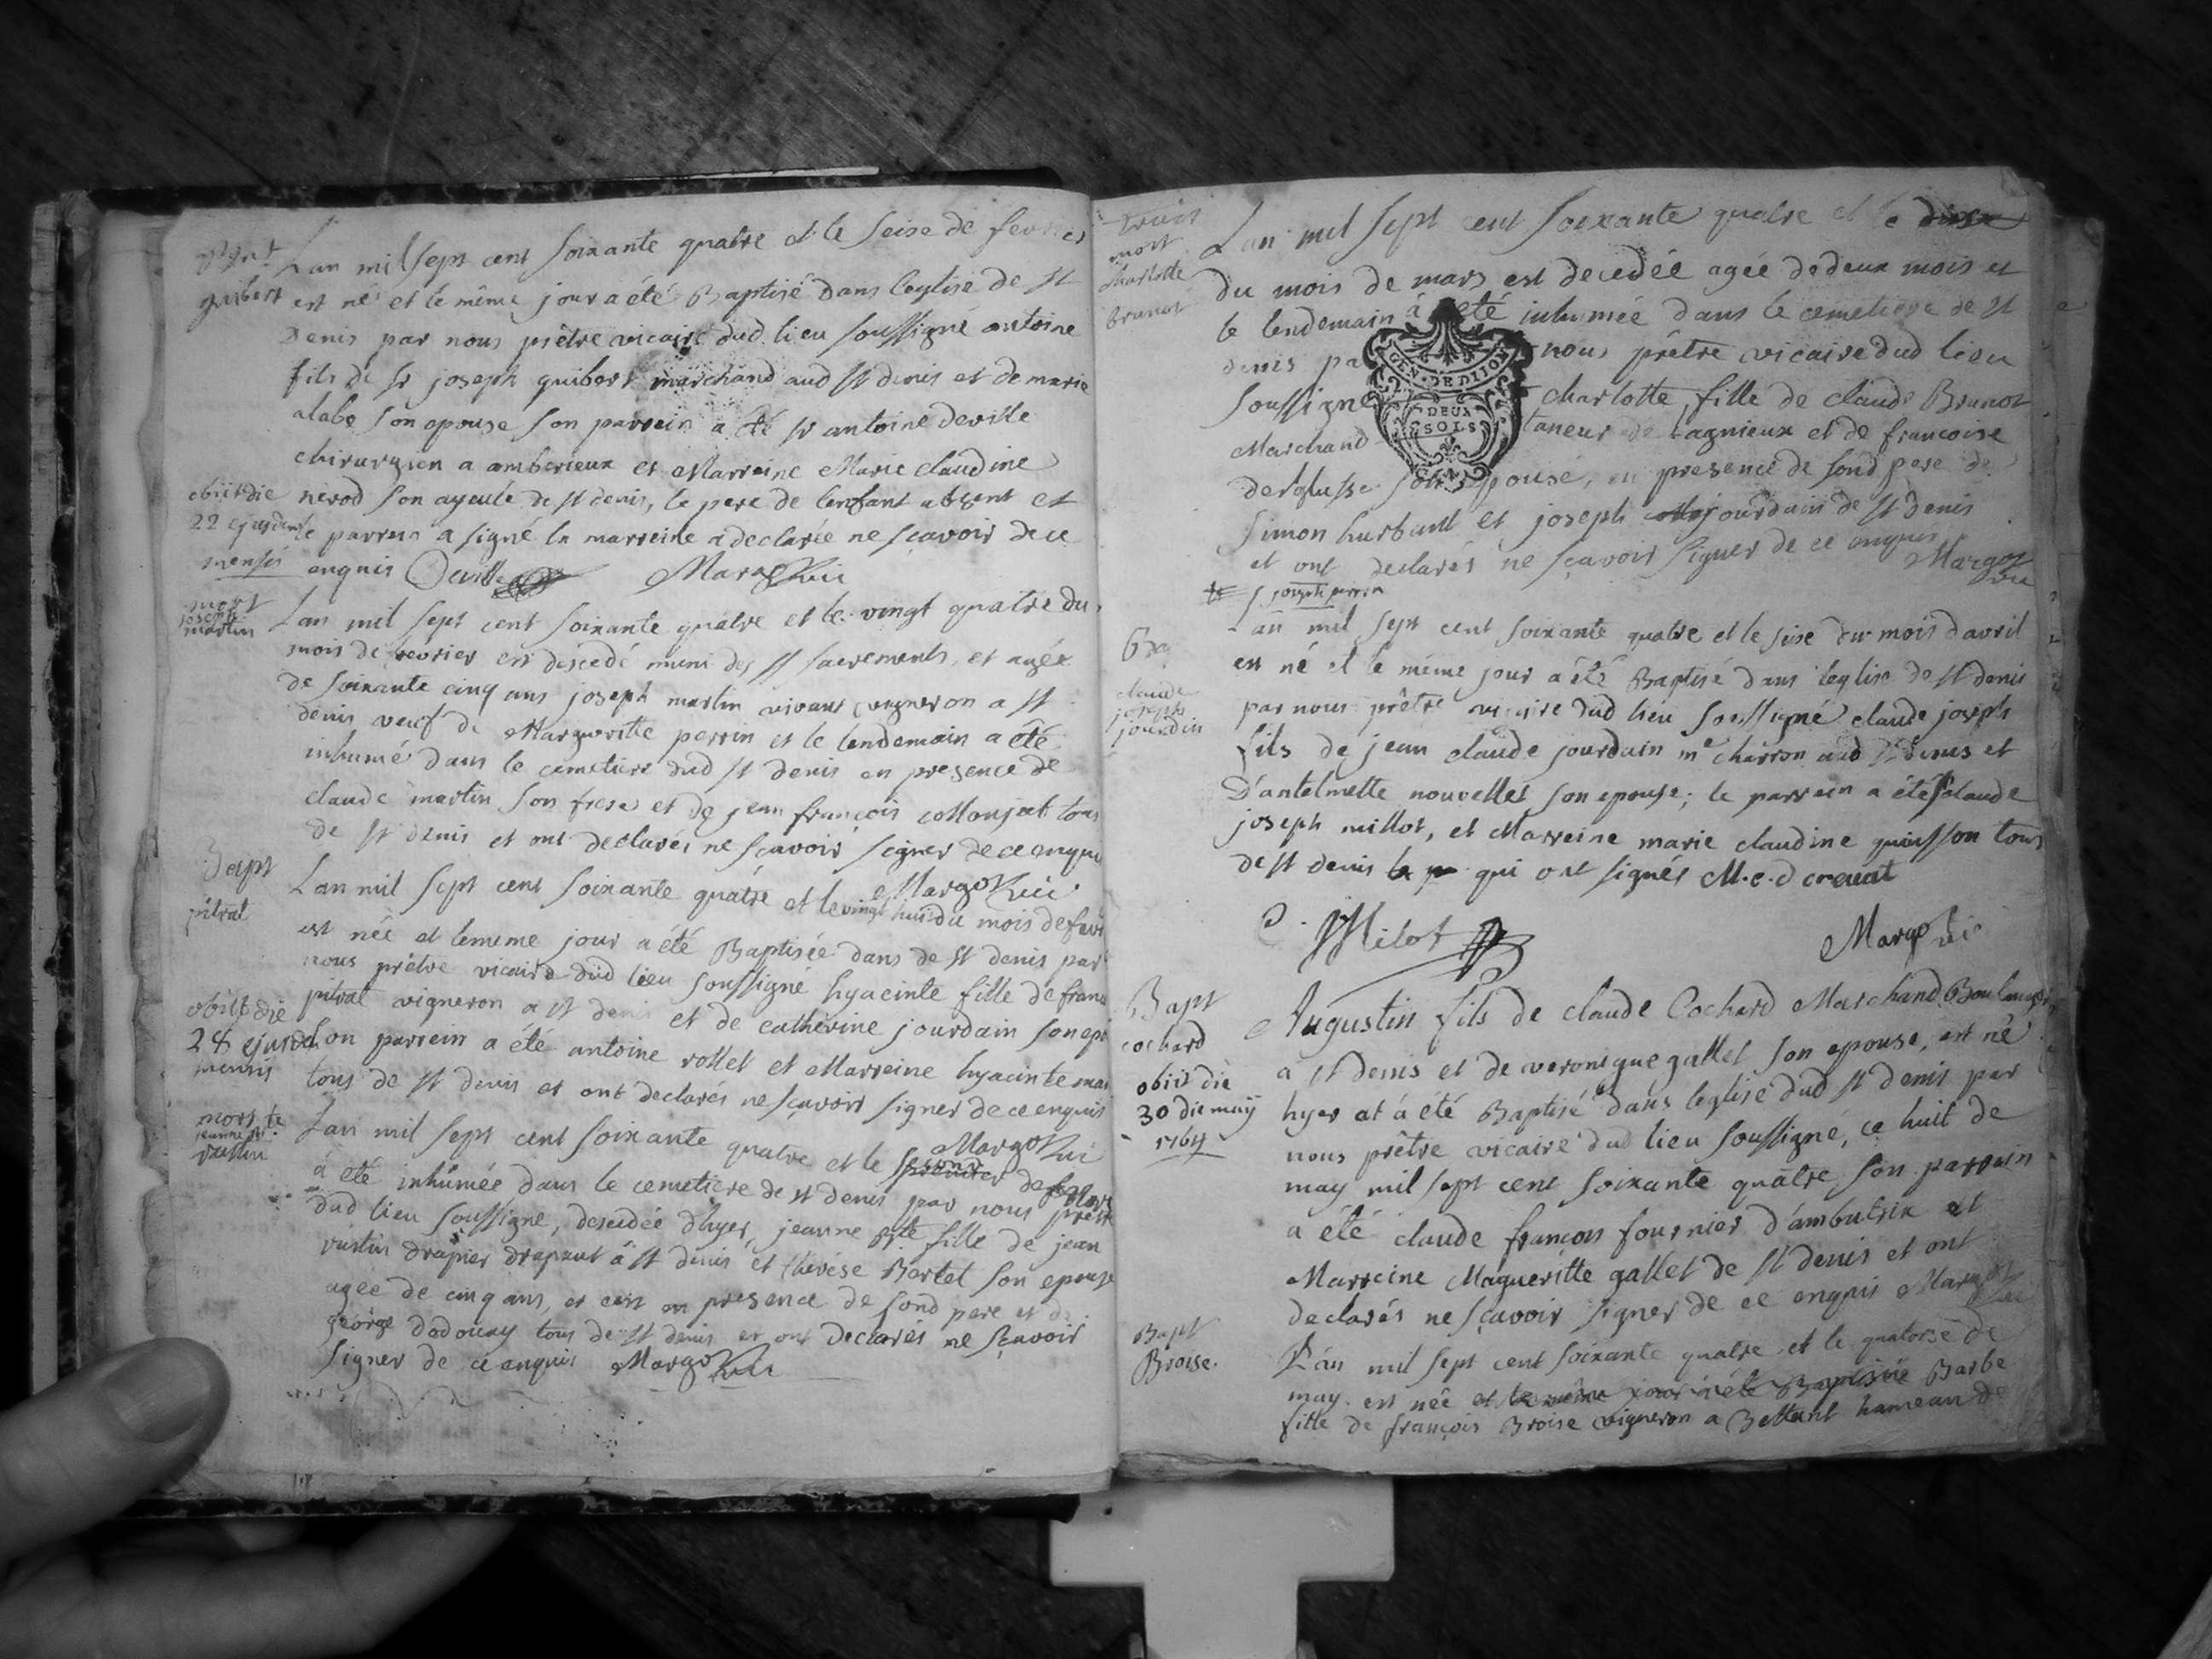 Bapt
guibert
Lan mil sept cent soixante quatre et le seise de fevrier
est né et le même jour a été Baptisé dans leglise de st
denis par nous prêtre vicaire dud lieu soussigné antoine
fils de sr joseph guibert marchand aud st denis et de marie
alabe son epouse son parrein a été sr antoine deville
chirurgien a amberieux et Marreine Marie claudine
nerod son ayeule de st denis, le pere de lenfant absent et
le parrein a signé la marreine a declarée ne sçavoir de ce
enquis Deville Margot vic
obiit die
22 ejusdem
mensis
mort
joseph
martin
Lan mil sept cent soixante quatre et le vingt quatre du
mois de fevrier est décedé muni des st sacrements, et agée
de soixante cinq ans joseph martin vivant vigneron a st
denis veuf de Margueritte perrin et le lendemain a été
inhumé dans le cemetiere dud st denis en presence de
claude martin son frere et de jean françois collonjat tous
de st denis et ont declarés ne sçavoir signer de ce enquis
Margot vic
Bapt
pitrat
Lan mil sept cent soixante quatre et le vingt huit du mois de fevr
est née et lememe jour a été Baptisée dans de st denis par
nous prêtre vicaire dud lieu soussigné hyacinte fille de franc
pitrat vigneron a st denis et de catherine jourdain son epo
son parrein a été antoine rollet et Marreine hyacinte mar
tous de st denis et ont declarés ne sçavoir signer de ce enquis
Margot vic
obiit die
28 ejusdem
mensis
mort
jeanne
Lan mil sept cent soixante quatre et le second de
a été inhumée dans le cemetiere de st denis par nous prêtre
dud lieu soussigné, decedée dhyer, jeanne Bte fille de jean
drapier drapant à st denis et thérése Bertet son epouse
agée de cinq ans, et cest en presence de sond pere et de
george dodouay tous de st denis et ont declarés ne sçavoir
signer de ce enquis Margot vic
mort
charlotte
brunot
Lan mil sept cent soixante quatre et le
du mois de mars est decedée agée de deux mois et
le lendemain à été inhumée dans le cemetiere de st
denis par nous prêtre vicaire dud lieu
soussigné charlotte, fille de claude Brunot
Marchand taneur de lagnieux et de francoise
son epouse, en presence de sond pere de
simon hurbant et joseph jourdain de st denis
et ont declarés ne sçavoir signer de ce enquis
Margot vic
joseph perrin
GEN · DE DIJON
DEUX
SOLS
claude
joseph
jourdin
Lan mil sept cent soixante quatre et le sise du mois davril
est né et le même jour a été Baptisé dans leglise de st denis
par nous prêtre vicaire dud lieu soussigné claude joseph
fils de jean claude jourdain me charron aud st denis et
D'antelmette nouvellet son epouse; le parrein a été claude
joseph millot, et Marreine marie claudine quinsson tous
de st denis qui ont signés M.c.d crevat
C. j Milot Margot vic
Bapt
cochard
obiit die
30 die maÿ
1764
Augustin fils de claude Cochard Marchand Boulanger
a st denis et de veronique gallet son epouse, est né
hyer at à été Baptisé dans leglise dud st denis par
nous prêtre vicaire dud lieu soussigné, ce huit de
may mil sept cent soixante quatre son parrein
a été claude francois fournier d'ambutrix et
Marreine Magueritte gallet de st denis et ont
declarés ne sçavoir signer de ce enquis Margot vic
Bapt
Broise.
Lan mil sept cent soixante quatre et le quatorse de
may est née et le même jour a été Baptisée Barbe
fille de françois Broise vigneron a Bettant hameau de